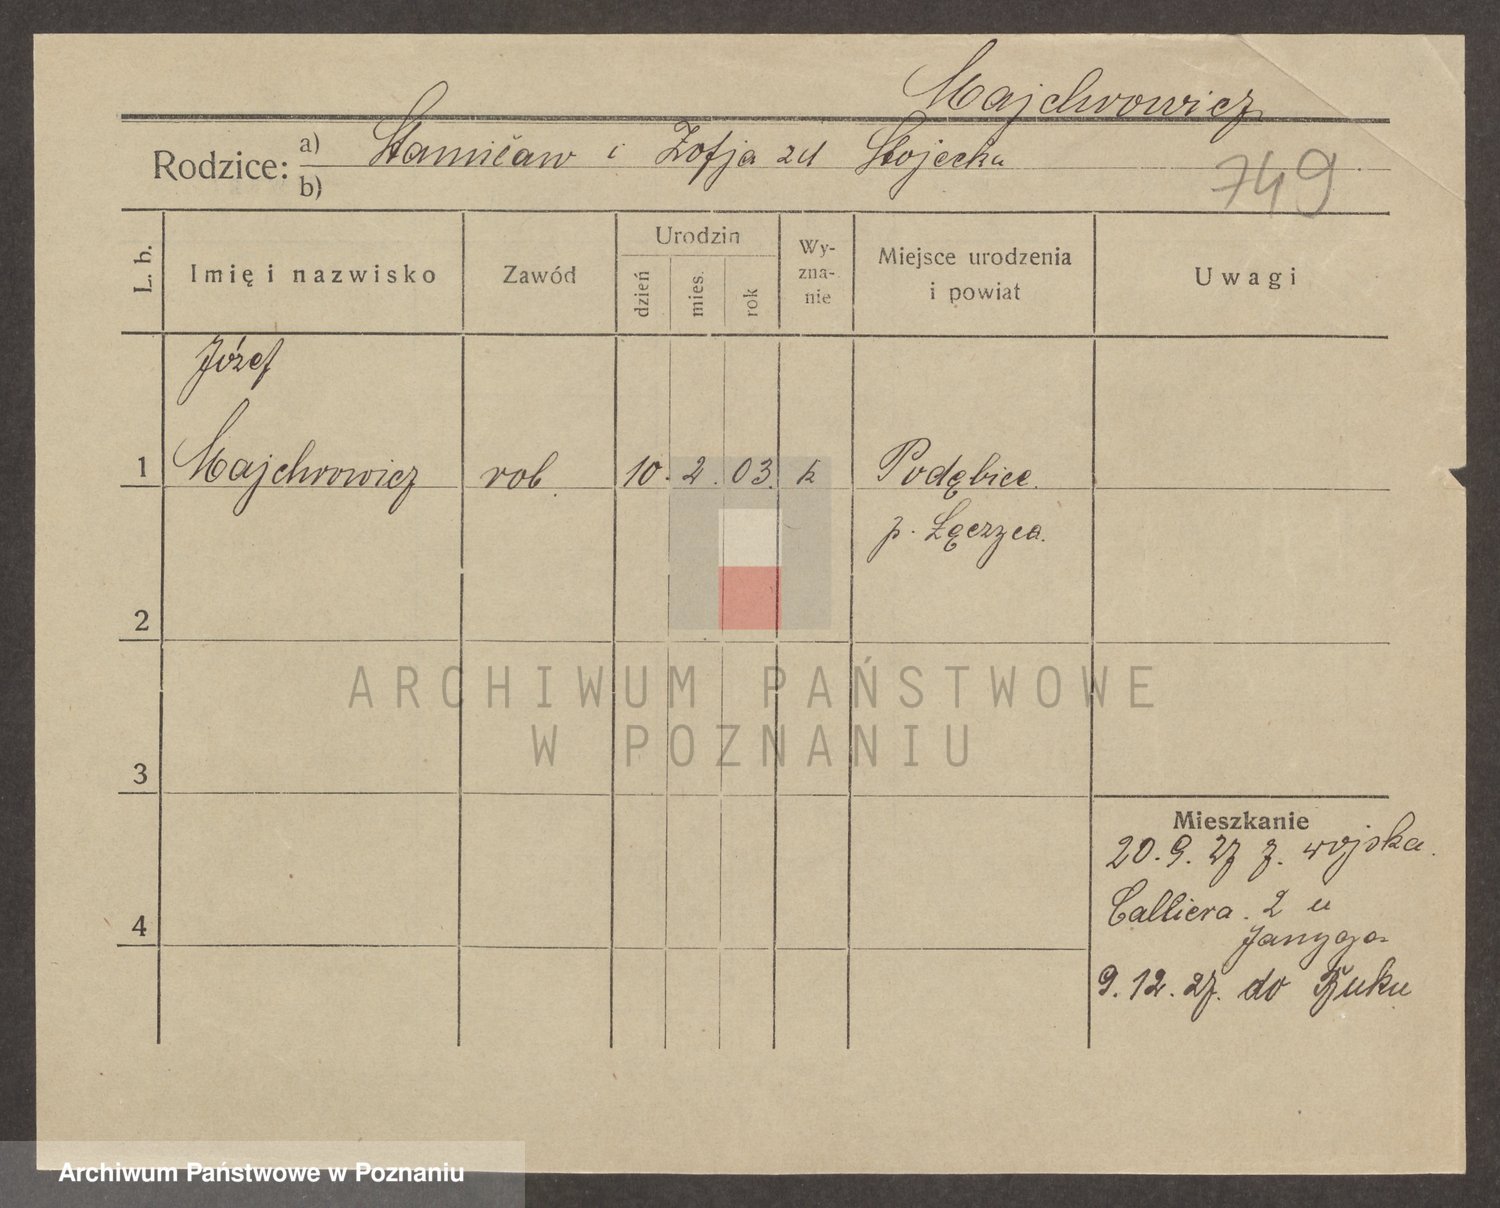 Majchrowicz
Rodzice: a) Stanisław i Zofja zd Stojecka
b)
749
L. b.
Imię i nazwisko
Zawód
Urodzin
dzień
mies.
rok
Wy-
zna-
nie
Miejsce urodzenia
i powiat
Uwagi
Józef
1 Majchrowicz rob. 10. 2. 03. k Podębice.
p. Łęczyca.
2
ARCHIWUM PAŃSTWOWE
W POZNANIU
3
Mieszkanie
20. 9. 27 z. wojska.
Calliera. 2 u
4
9. 12. 27. do Buku
Archiwum Państwowe w Poznaniu